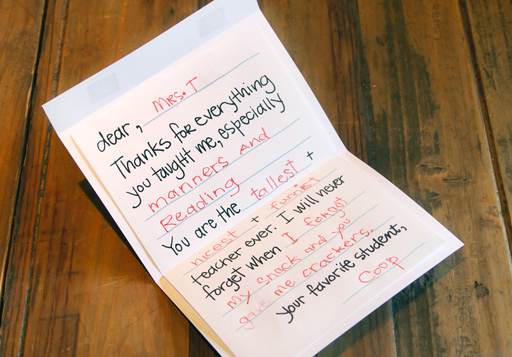 dear, Mrs. T
Thanks for everything
you taught me, especially
manners And
Reading
You are the tallest +
nicest + funniest
teacher ever. I will never
forget when I forgot
my snack and you
gave me crackers.
your favorite student,
Coop